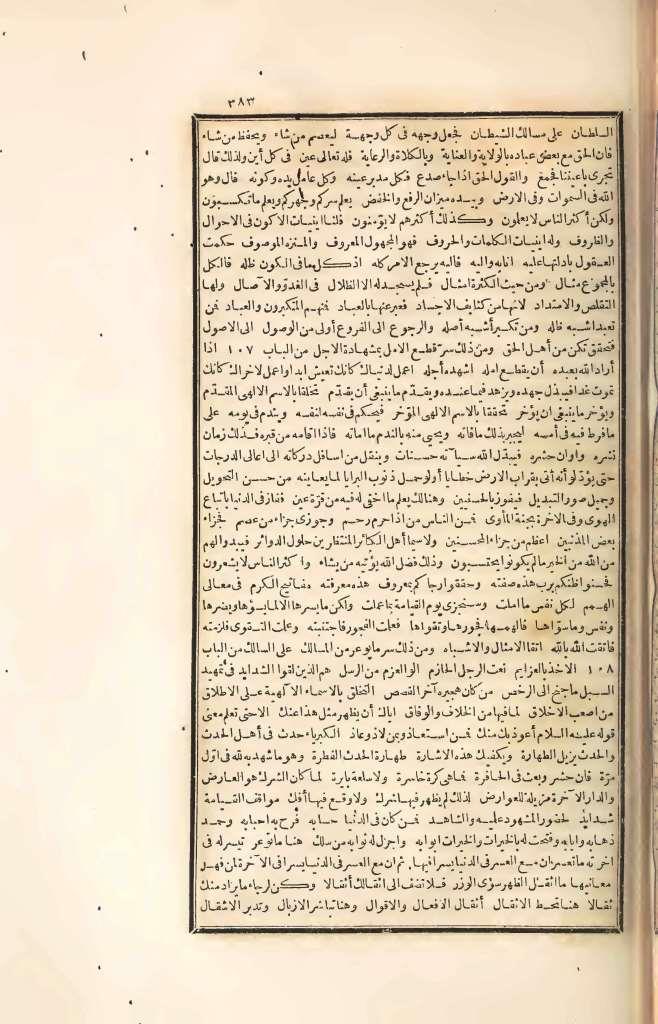 ٣٨٣
السلطان على مسالك الشيطان فجعل وجهه فى كل وجهة ليعصم من شاء ويحفظ من شاء
فان الحق مع بعض عباده بالولاية والعناية وبالكلاة والرعاية فله تعالى عين فى كل أين ولذلك قال
تجرى باعيننا فجمع والقول الحق اذا جاء صدع فكل مدبر عينه وكل عامل يده وكونه قال وهو
الله فى السموات وفى الارض وبيده ميزان الرفع والخفض يعلم سركم وجهركم ويعلم ما تكسبون
ولكن أكثر الناس لا يعلمون وكذلك أكثرهم لا يؤمنون فلنا اينيات الاكون فى الاحوال
والظروف وله اينيات الكلمات والحروف فهو المجهول المعروف والمنزه الموصوف حكمت
العقول بادلتها عليه انابه واليه فاليه يرجع الامر كله اذ كل ما فى الكون ظله فالكل
بالمجموع مثال ومن حيث الكثرة امثال فلم يسجد له الا الظلال فى الغدو والآصال ولها
التقلص والامتداد لانها من كثايف الاجساد فعبر عنها بالعباد فمنهم المتكبرون والعباد فمن
تعبد اشبه ظله ومن تكبر أشبه أصله والرجوع الى الفروع أولى من الوصول الى الاصول
فتحقق تكن من أهل الحق ومن ذلك سر قطع الامل بمشهادة الاجل من الباب ١٠٧ اذا
أراد الله بعبده أن يقطع امله اشهده أجله اعمل لدنياك كانك تعيش ابدا واعمل لاخرالك كانك
تموت غدا فيبذل جهده ويزهد فيما عنده ويقدم ما ينبغى أن يقدم تخلقا بالاسم الالهى المقدم
ويؤخر ما ينبغى ان يؤخر تحققا بالاسم الالهى المؤخر فيحكم فى نفسه لنفسه ويندم فى يومه على
ما فرط فيه فى أمسه ليجبر بذلك ما فاته ويحيى منه بالندم ما اماته فاذا اقامه من قبره فذلك زمان
نشره واوان حشره فيبدل الله سيآته حسنات وينقل من اسافل دركاته الى اعالى الدرجات
حتى يود لو أنه أتى بقراب الارض خطايا أو لو حمل ذنوب البرايا لما يعاينه من حسن التحويل
وجميل صور التبديل فيفوز بالحسنيين وهنالك يعلم ما اخفى له فيه من قرة عين ففاز فى الدنيا باتباع
الهوى وفى الاخرة بجنة المأوى فمن الناس من اذا حرم رحم وجوزى جزاء من عصم فجزاء
بعض المذنبين اعظم من جزاء المحسنين ولا سيما أهل الكبائر المنتظرين حلول الدوائر فيبدو الهم
من الله من الخير ما لم يكونوا يحتسبون وذلك فضل الله يؤتيه من يشاء واكثر الناس لا يشعرون
فحسنوا ظنكم برب هذه صفته وحققوا رجاكم بمعروف هذه معرفته مفاتيح الكرم فى معالى
الهمم لكل نفس ما املت وستجزى يوم القيامة بما عملت ولكن مما يسرها الا لما يسوؤها ويضرها
ونفس وما سواها فالهمها فجورها وتقواها فعلمت الفجور فاجتنبته وعلمت التقوى فلزمته
فاتقت الله بالله اتقا الامثال والاشباه ومن ذلك سر ما يوعر من المسالك على السالك من الباب
١٠٨ الاخذ بالعزايم نعت الرجل الحازم اولو العزم من الرسل هم الذين لقوا الشدايد فى تمهيد
السبل ما جنح الى الرخص من كان همه هجيره آخر القصص التخلق بالاسماء الالهية على الاطلاق
من اصعب الاخلاق لما فيها من الخلاف والوفاق اياك أن يظهر مثل هذا عنك الا حتى تعلم معنى
قوله عليه السلام أعوذ بك منك فمن استعاذ وبمن لاذ وعاذ الكبرياء حدث فى أهل الحدث
والحدث يزيل الطهارة ويكفيك هذه الاشارة طهارة الحدث الفطرة وهو ما شهد به لله فى اول
مرة فان حشر وبعث فى الحافرة فما هى كرة خاسرة ولا سلعة بايرة لما كان الشرك هو العارض
والدار الآخرة مزيلة للعوارض لذلك لم يظهر فيها شرك ولا وقع فيها أفك مواقف القيامة
شدايد لحضور المشهود عليه والشاهد فمن كان فى الدنيا حسابه فرح به احبابه وحمد
ذهابه وايابه وفتحت له بالخيرات والخيرات ابوابه واجزل له ثوابه من سلك هنا ما توعر تيسر له فى
اخرته ما تعسر ان مع العسر فى الدنيا يسرا فيها ثم ان مع العسر فى الدنيا يسرا فى الآخرة لمن فهم
معانيها ما اثقل الظهر سوى الوزر فلا تضف الى اثقالك أثقالا وكن لرحاء ما يراد منك
ثقالا هنا تحط الاثقال أثقال الافعال والاقوال وهنا تباشر الازبال وتدبر الاشغال